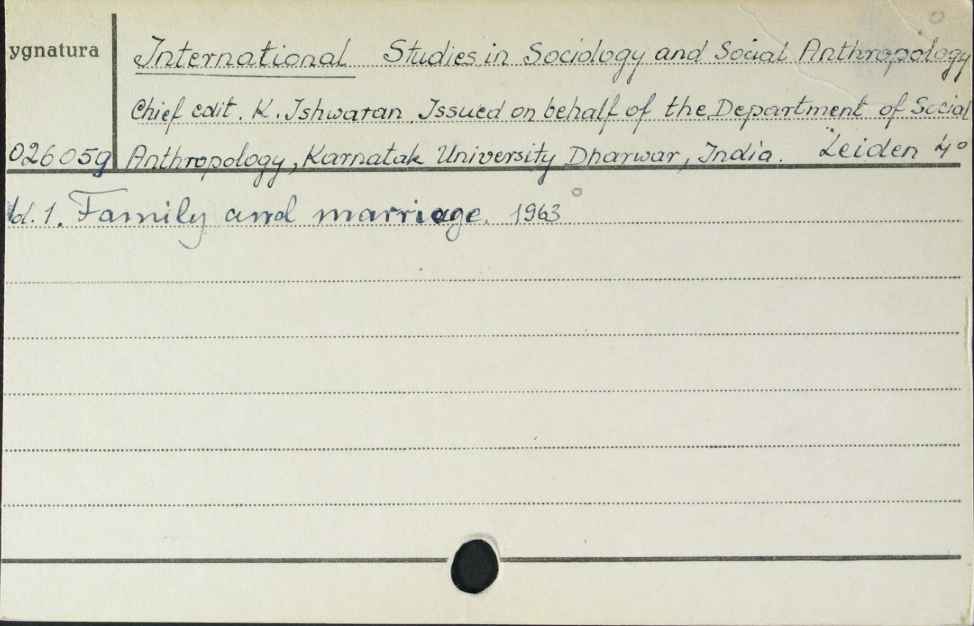 ygnatura
International Studies in Sociology and Social Anthropology
Chief edit. K. Ishwaran Issued on behalf of the Department of Social
026059 Anthropology, Karnatak University Dharwar, India. Leiden 4°
d. 1. Family and marriage. 1963